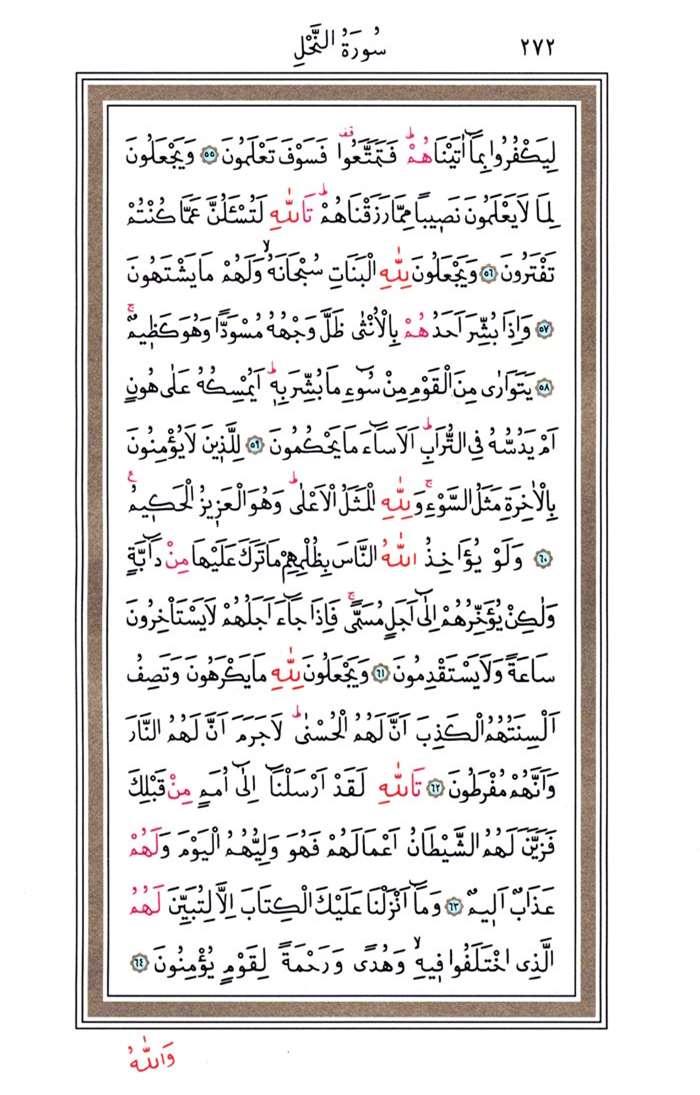 ٢٧٢ سُورَةُ النَّحْلِ
لِيَكْفُرُوا بِمَٓا اٰتَيْنَاهُمْۜ فَتَمَتَّعُوا۠ فَسَوْفَ تَعْلَمُونَ ﴿٥٥﴾ وَيَجْعَلُونَ
لِمَا لَا يَعْلَمُونَ نَص۪يبًا مِمَّا رَزَقْنَاهُمْۜ تَاللّٰهِ لَتُسْـَٔلُنَّ عَمَّا كُنْتُمْ
تَفْتَرُونَ ﴿٥٦﴾ وَيَجْعَلُونَ لِلّٰهِ الْبَنَاتِ سُبْحَانَهُۙ وَلَهُمْ مَا يَشْتَهُونَ
﴿٥٧﴾ وَاِذَا بُشِّرَ اَحَدُهُمْ بِالْاُنْثٰى ظَلَّ وَجْهُهُ مُسْوَدًّا وَهُوَ كَظ۪يمٌۚ
﴿٥٨﴾ يَتَوَارٰى مِنَ الْقَوْمِ مِنْ سُٓوءِ مَا بُشِّرَ بِه۪ۜ اَيُمْسِكُهُ عَلٰى هُونٍ
اَمْ يَدُسُّهُ فِي التُّرَابِۜ اَلَا سَٓاءَ مَا يَحْكُمُونَ ﴿٥٩﴾ لِلَّذ۪ينَ لَا يُؤْمِنُونَ
بِالْاٰخِرَةِ مَثَلُ السَّوْءِۚ وَلِلّٰهِ الْمَثَلُ الْاَعْلٰىۜ وَهُوَ الْعَز۪يزُ الْحَك۪يمُ۟
﴿٦٠﴾ وَلَوْ يُؤَاخِذُ اللّٰهُ النَّاسَ بِظُلْمِهِمْ مَا تَرَكَ عَلَيْهَا مِنْ دَٓابَّةٍ
وَلٰكِنْ يُؤَخِّرُهُمْ اِلٰٓى اَجَلٍ مُسَمًّىۚ فَاِذَا جَٓاءَ اَجَلُهُمْ لَا يَسْتَأْخِرُونَ
سَاعَةً وَلَا يَسْتَقْدِمُونَ ﴿٦١﴾ وَيَجْعَلُونَ لِلّٰهِ مَا يَكْرَهُونَ وَتَصِفُ
اَلْسِنَتُهُمُ الْكَذِبَ اَنَّ لَهُمُ الْحُسْنٰىۜ لَا جَرَمَ اَنَّ لَهُمُ النَّارَ
وَاَنَّهُمْ مُفْرَطُونَ ﴿٦٢﴾ تَاللّٰهِ لَقَدْ اَرْسَلْنَٓا اِلٰٓى اُمَمٍ مِنْ قَبْلِكَ
فَزَيَّنَ لَهُمُ الشَّيْطَانُ اَعْمَالَهُمْ فَهُوَ وَلِيُّهُمُ الْيَوْمَ وَلَهُمْ
عَذَابٌ اَل۪يمٌ ﴿٦٣﴾ وَمَٓا اَنْزَلْنَا عَلَيْكَ الْكِتَابَ اِلَّا لِتُبَيِّنَ لَهُمُ
الَّذِي اخْتَلَفُوا ف۪يهِۙ وَهُدًى وَرَحْمَةً لِقَوْمٍ يُؤْمِنُونَ ﴿٦٤﴾
وَاللّٰهُ